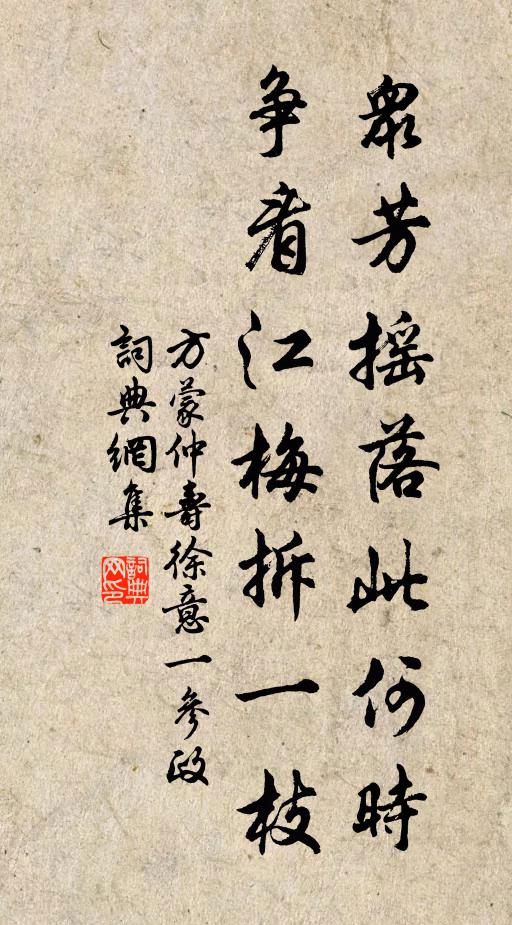 眾芳摇落此何時
争看江梅拆一枝
方蒙仲壽徐意一參政
詞典網集
詞典網印